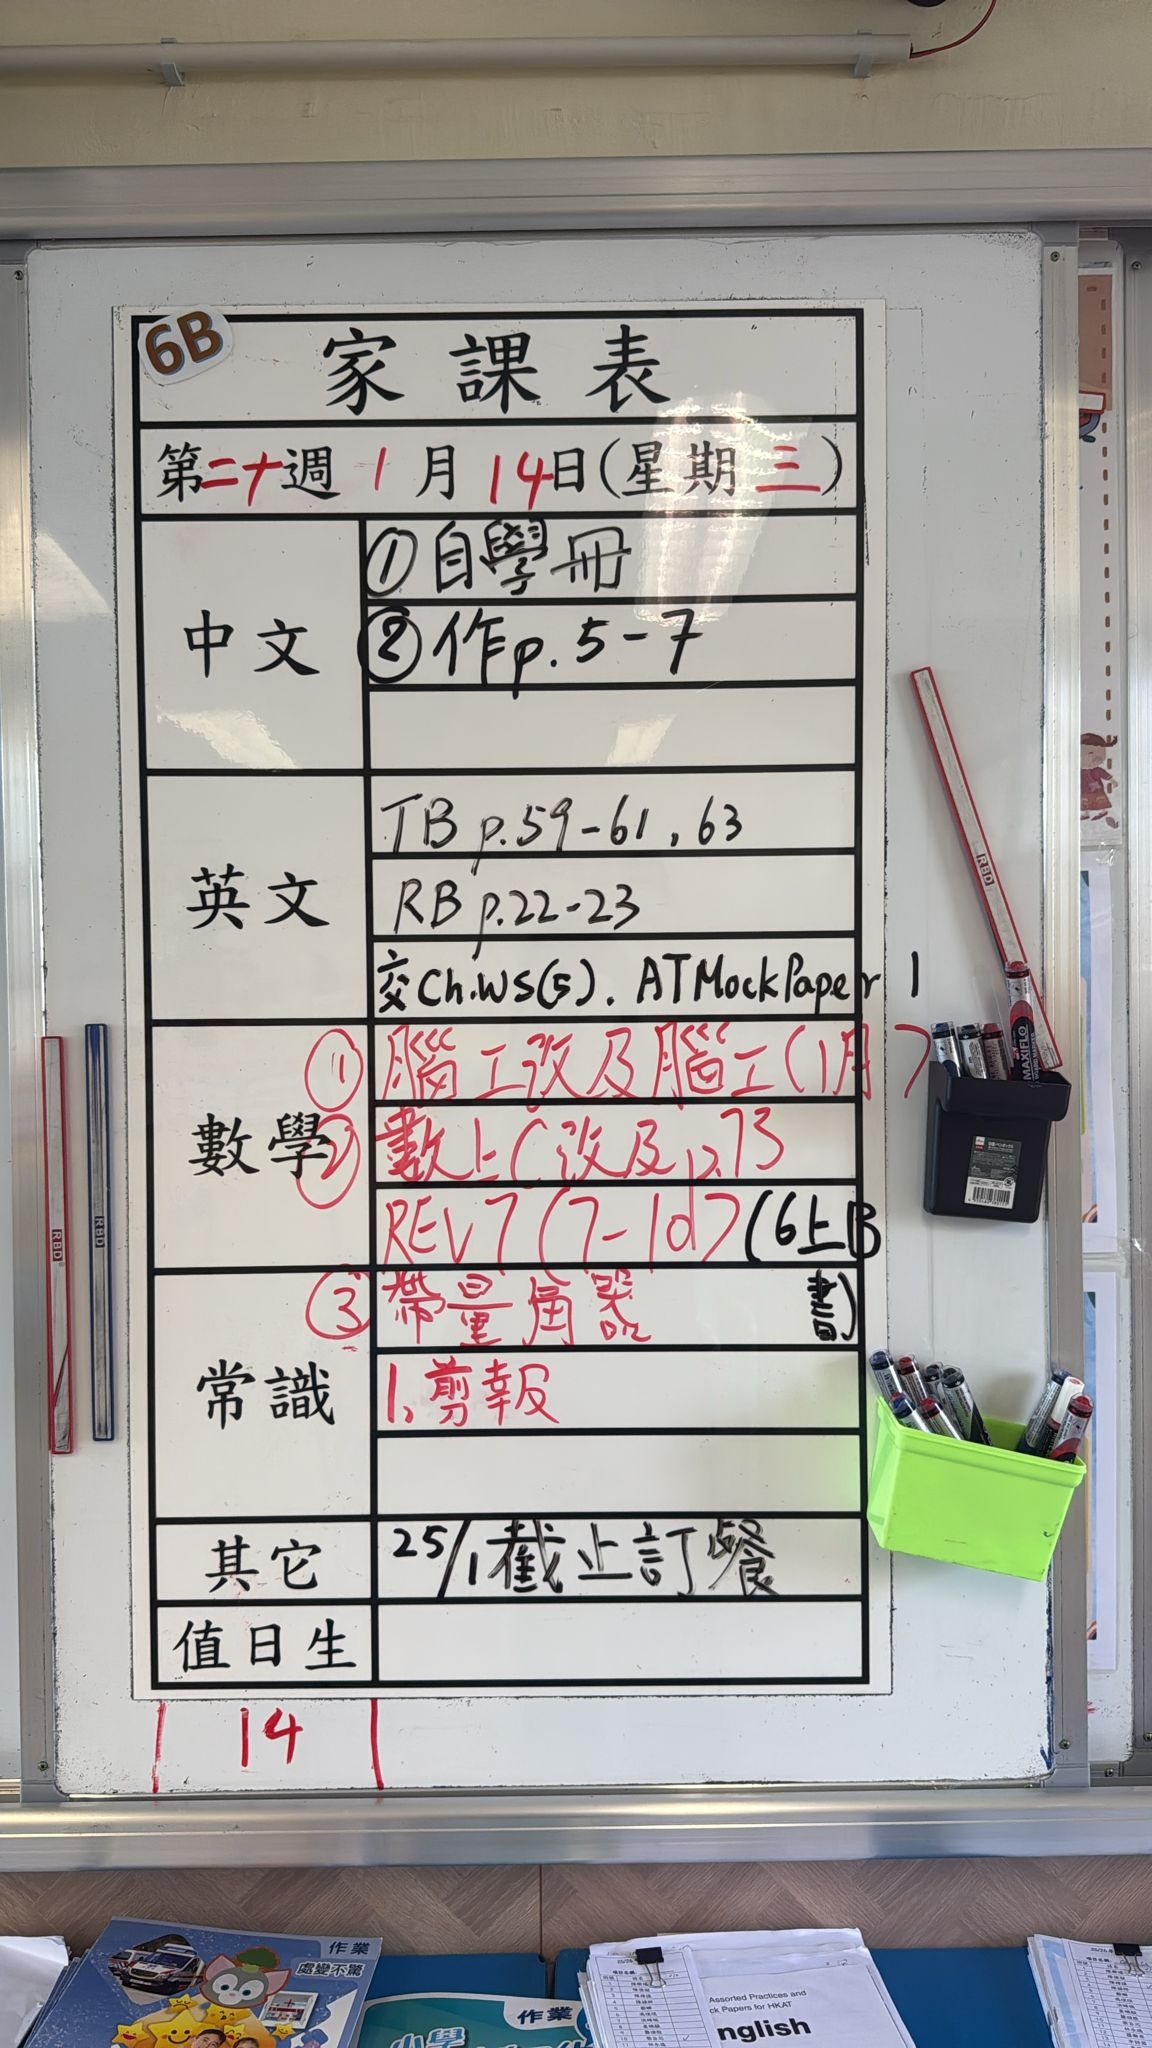 6B
家課表
第二十週 1月14日(星期三)
中文
①自學冊
②作p.5-7
英文
TB p.59-61, 63
RB p.22-23
交Ch.WS(5). AT Mock Paper 1
數學
①腦工改及腦工(1月)
②數上C改及p.73
REV7(7-1d)(6上B書)
③帶量角器
常識
1.剪報
其它
25/1截止訂餐
值日生
14
RBD
RBD
RBD
MAXIFLO
作業
處變不驚
作業
小學
Assorted Practices and
ck Papers for HKAT
nglish